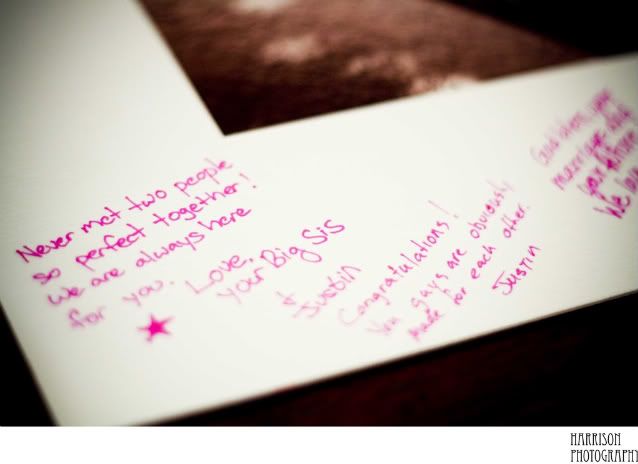 Never met two people
so perfect together!
We are always here
for you. Love,
your Big Sis
+
Justin
Congratulations!
You guys are obviously
made for each other.
Justin
God bless your
marriage and
your future
We
HARRISON
PHOTOGRAPHY